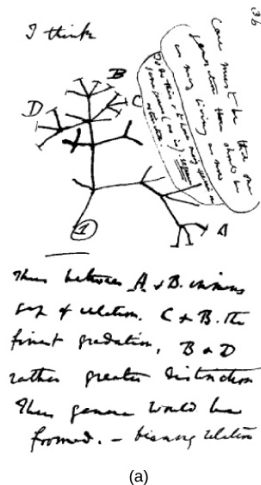 36
I think
Case must be that one
generation then should be
as many living as now
To do this & to have many species in
same genus (as is) requires
extinction.
B
C
D
A
1
Thus between A & B. immens
gap of relation. C & B. the
finest gradation, B & D
rather greater distinction
Thus genera would be
formed. — bearing relation
(a)